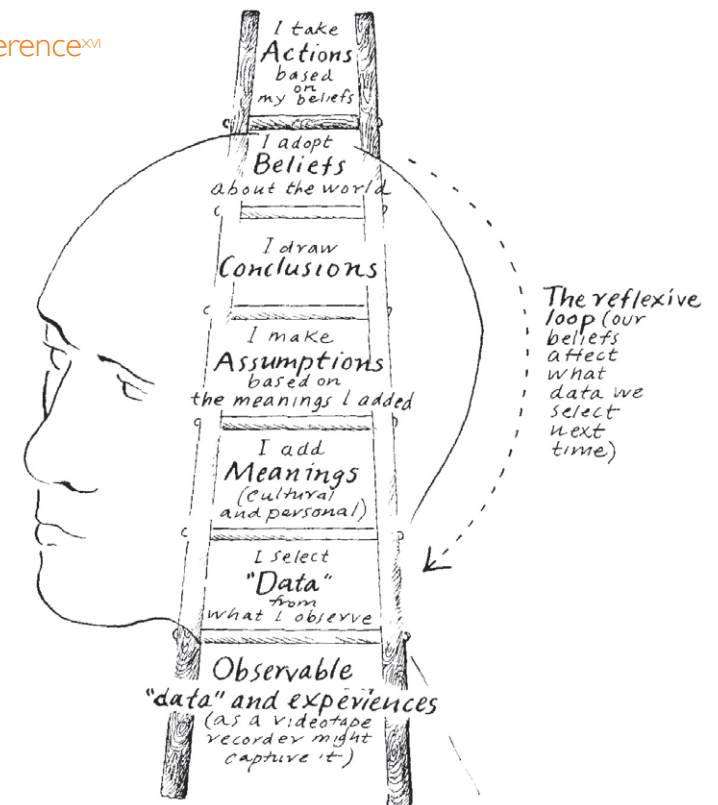 erenceXVI
I take
Actions
based
on
my beliefs
I adopt
Beliefs
about the world
I draw
Conclusions
I make
Assumptions
based on
the meanings I added
I add
Meanings
(cultural
and personal)
I select
"Data"
from
what I observe
Observable
"data" and experiences
(as a videotape
recorder might
capture it)
The reflexive
loop (our
beliefs
affect
what
data we
select
next
time)